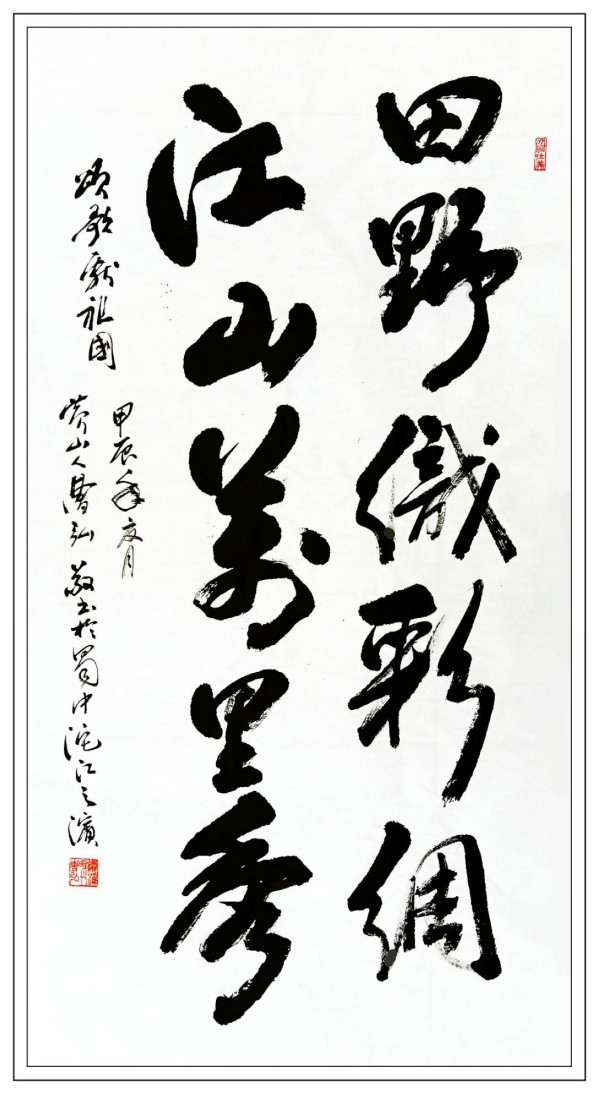 田野織彩綢
江山萬里秀
頌歌獻祖國
甲辰年夏月
营山人唐弘敬书於蜀中沱江之濱